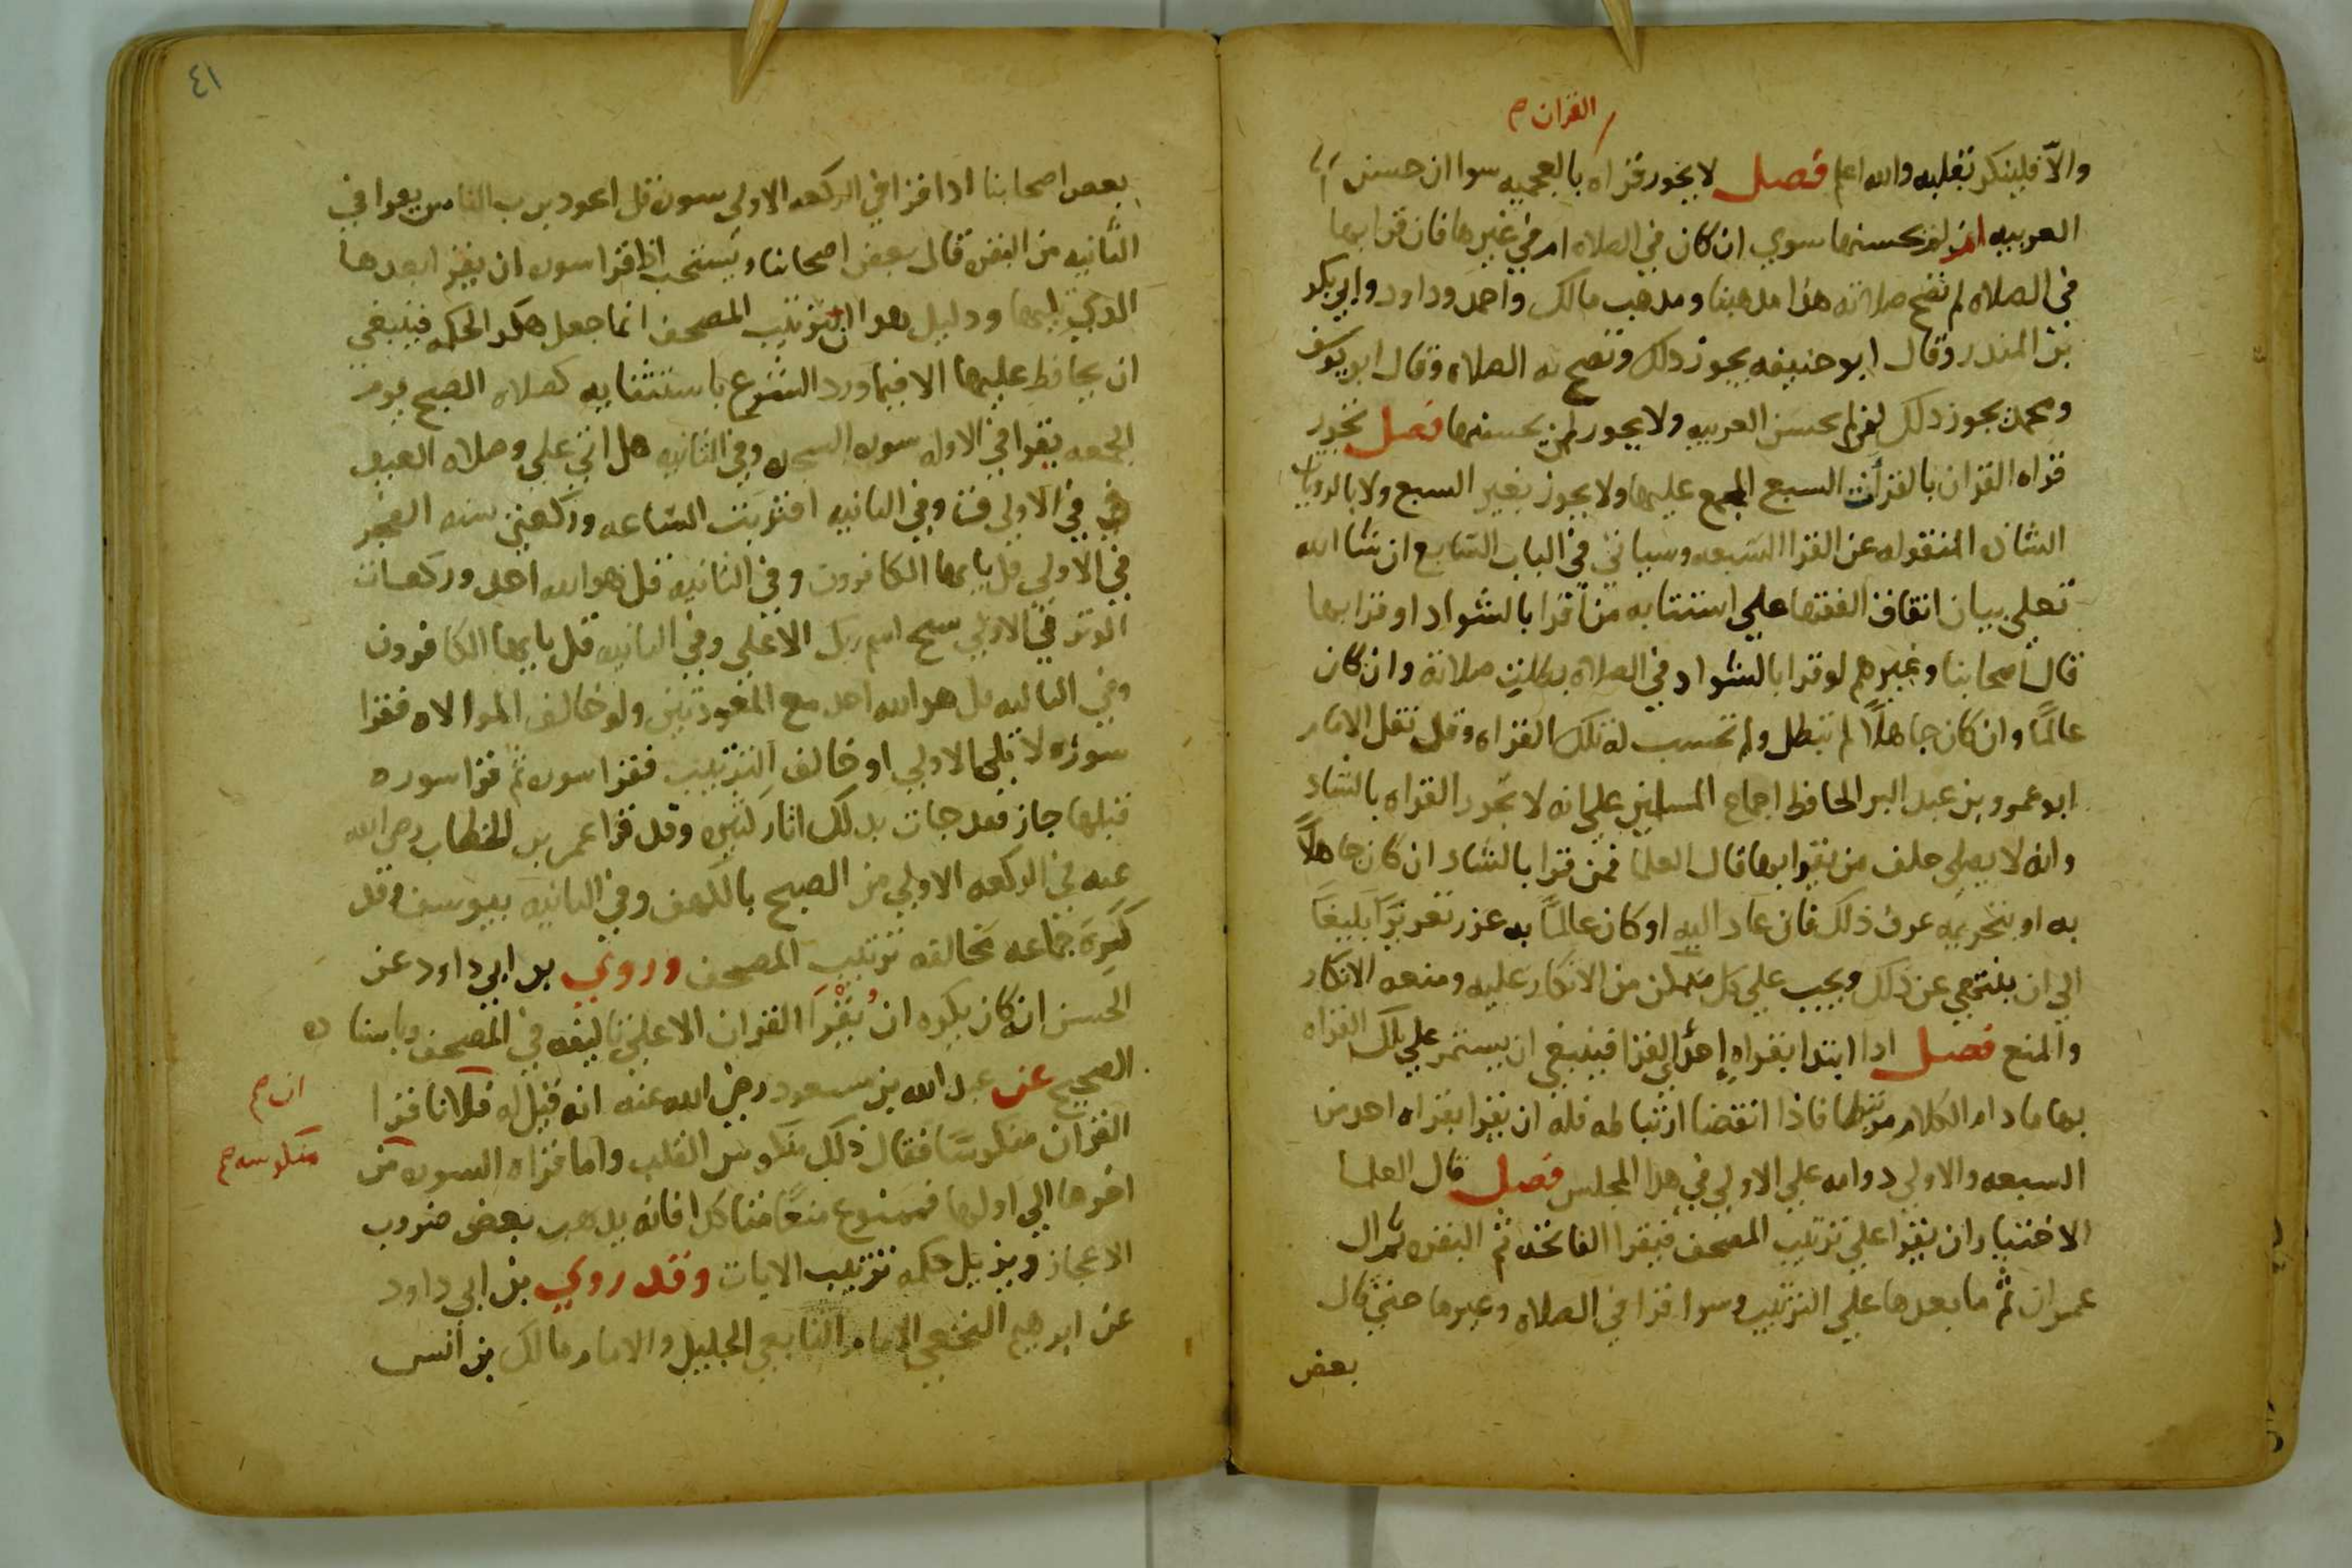 القران صح
والا فلينكر بقلبه والله اعلم فصل لا يجوز قراه بالعجميه سوا ان حسن
العربيه ام لم يحسنها سوي ان كان في الصلاه ام في غيرها فان قرا بها
في الصلاه لم تصح صلاته هذا مذهبنا ومذهب مالك واحمد وداود وابي بكر
بن المنذر وقال ابو حنيفه يجوز ذلك وتصح به الصلاه وقال ابو يوسف
ومحمد يجوز ذلك لمن لم يحسن العربيه ولا يجوز لمن يحسنها فصل تجوز
قراه القران بالقرأت السبع المجمع عليها ولا يجوز بغير السبع ولا بالروايات
الشاذه المنقوله عن القرا السبعه وسياتي في الباب السابع ان شا الله
تعلي بيان اتفاق الفقها علي استتابه من اقرا بالشواد او قرا بها
قال اصحابنا وغيرهم لو قرا بالشواد في الصلاه بطلت صلاته وان كان
عالمًا وان كان جاهلًا لم تبطل ولم تحسب له تلك القراه وقد نقل الامام
ابو عمرو بن عبد البر الحافظ اجماع المسلمين علي انه لا تجوز القراه بالشاد
وانه لا يصلي خلف من يقرا بها قال العلما فمن قرا بالشاد ان كان جاهلًا
به او بتحريمه عرف ذلك فان عاد اليه او كان عالمًا به عزر تعزيرًا بليغًا
الي ان ينتهي عن ذلك ويجب علي كل متمكن من الانكار عليه ومنعه الانكار
والمنع فصل اذا ابتدا بقراه احد القرا فينبغي ان يستمر علي تلك القراه
بها ما دام الكلام مرتبطا فاذا انقضا ارتباطه فله ان يقرا بقراه احد من
السبعه والاولي دوامه علي الاولي في هذا المجلس فصل قال العلما
الاختيار ان يقرا علي ترتيب المصحف فيقرا الفاتحه ثم البقره ثم ال
عمران ثم ما بعدها علي الترتيب وسوا قرا في الصلاه وغيرها حتي قال
بعض
٤١
بعض اصحابنا اذا قرا في الركعه الاولي سوره قل اعوذ برب الناس يقرا في
الثانيه من البقره قال بعض اصحابنا ويستحب اذا قرا سوره ان يقرا بعدها
الذي يليها ودليل هذا ان ترتيب المصحف انما جعل هكذا لحكمه فينبغي
ان يحافظ عليها الا فيما ورد الشرع باستثنايه كصلاه الصبح يوم
الجمعه يقرا في الاوله سوره السجده وفي الثانيه هل اتي علي وصلاه العيد
في الاولي ق وفي الثانيه اقتربت الساعه وركعتي سنه الفجر
في الاولي قل يايها الكافرون وفي الثانيه قل هو الله احد وركعات
الوتر في الاولي سبح اسم ربك الاعلي وفي الثانيه قل يايها الكافرون
وفي الثالثه قل هو الله احد مع المعوذتين ولو خالف الموالاه فقرا
سوره لا تلي الاولي او خالف الترتيب فقرا سوره ثم قرا سوره
قبلها جاز فقد جات بذلك اثار كثيره وقد قرا عمر بن الخطاب رضي الله
عنه في الركعه الاولي من الصبح بالكهف وفي الثانيه بيوسف وقد
كره جماعه مخالفه ترتيب المصحف وروي بن ابي داود عن
الحسن انه كان يكره ان يُقْرَا القران الا علي تاليفه في المصحف وباسناده
الصحيح عن عبد الله بن مسعود رضي الله عنه انه قيل له فلانا قرا
ان صح
القران منكوسًا فقال ذلك منكوس القلب واما قراه السوره من
منكوسه صح
اخرها الي اولها فممنوع منعًا متاكدا فانه يذهب بعض ضروب
الاعجاز ويزيل حكمه ترتيب الايات وقد روي بن ابي داود
عن ابرهيم النخعي الامام التابعي الجليل والامام مالك بن انس